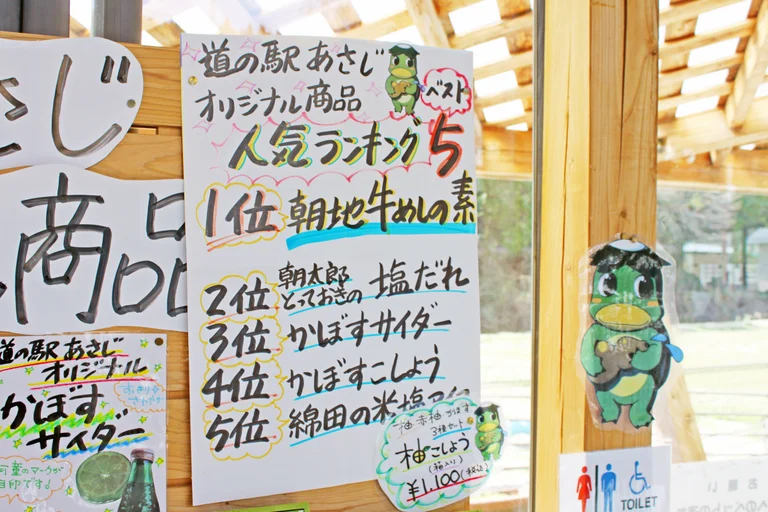 道の駅あさじ
オリジナル商品
ベスト
人気ランキング5
1位 朝地牛めしの素
2位 朝太郎とっておきの 塩だれ
3位 かぼすサイダー
4位 かぼすこしょう
5位 綿田の米塩アイ
じ
商品
道の駅あさじ
オリジナル
かぼす
サイダー
柚 赤柚 かぼす
3種セット
柚こしょう
(箱入り)
¥1,100(税込)
TOILET